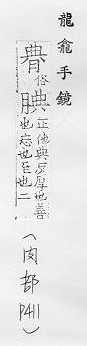 龍龕手鏡
俗腆正他典反厚也善
也忘也至也二
(肉部 P411)